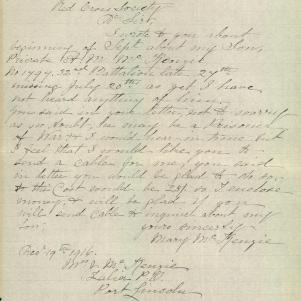 Red Cross Society
Dr Sir,
I wrote to you about
beginning of Sept about my Son,
Private M. McKenzie
No 1794. 32nd Battalion late 27th
missing July 20th as yet I have
not heard anything of him,
you said in your letter, not to worry
as in he may be a Prisoner
of War & I would hear in time. but
I feel that I would like you to
send a cable for me, you said
in letter you would be glad to do so,
& the Cost would be so I enclose
money, & will be glad if you
will send Cable & inquire about my
Son.
Yours sincerely
Mary McKenzie
Dec 19th 1916.
Mrs J. McKenzie
P.O.
Port Lincoln